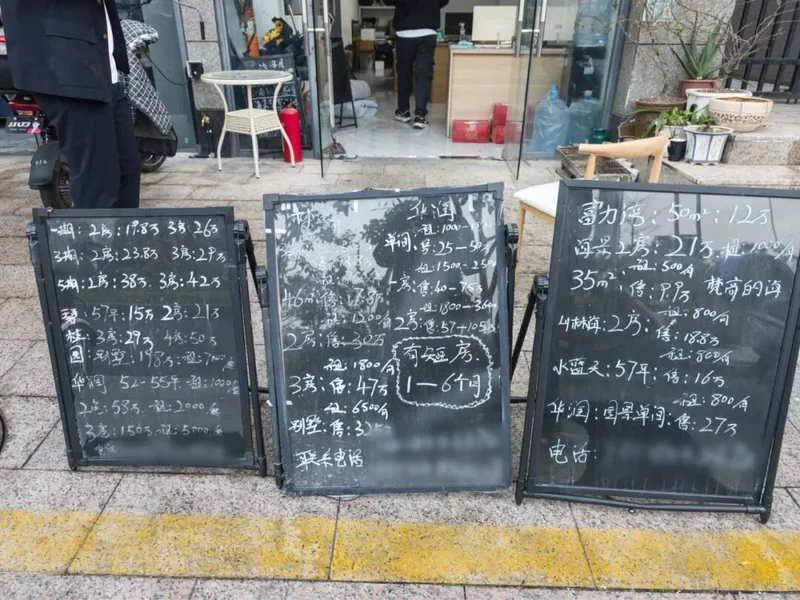 一期: 2房: 17.8万 3房 26万
3期: 2房: 23.8万 3房: 29万
5期: 2房: 38万 3房: 42万
57平: 15万 2房: 21万
桂: 3房: 29万 4房: 50万
园: 别墅: 198万 租:
华润 52-55平 租: 1000
2房: 58万 租: 2000
3房: 150万 租: 5000
林
46m²: 售:
2房: 售:
租: 1800/月
3房: 售: 47万
租: 6500/月
别墅: 售:
联系电话
华润
租: 1000
单间: 售: 25—50万
租: 1500-25
房: 售: 40—75万
租: 1800—360
2房: 售: 57+105万
有短房
1—6个月
富力湾: 50m²: 12万
海景2房: 21万 租: 1000/月
租: 500/月
35m²: 售: 9.9万 梵高的海
租: 800/月
山林海: 2房: 售: 18.8万
租: 800/月
水蓝天: 57平: 售: 16万
租: 800/月
华润: 园景单间: 售: 27万
电话: